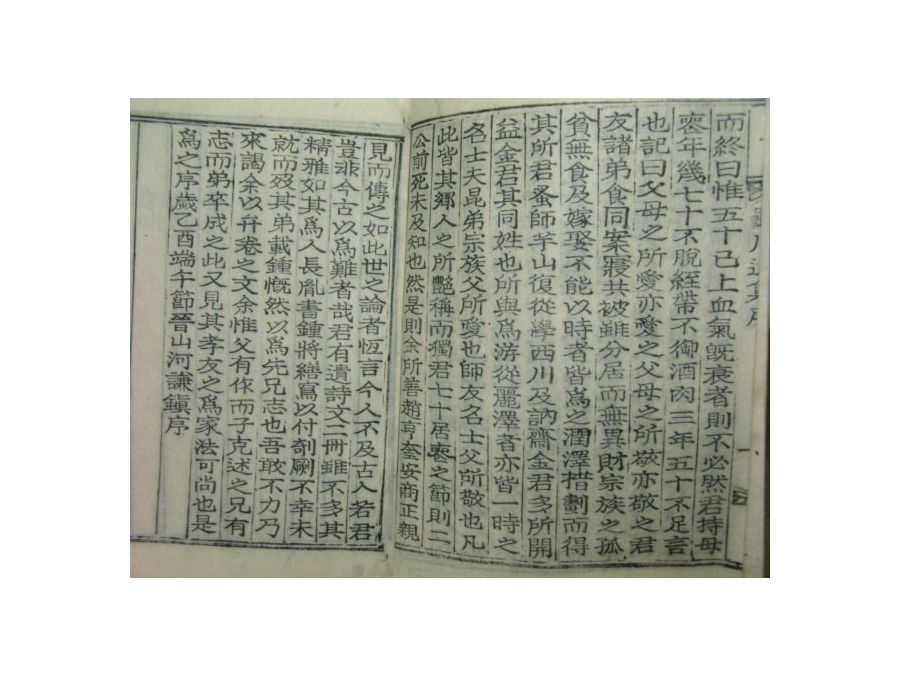 而終曰惟五十已上血氣旣衰者則不必然君持母
喪年幾七十不脫絰帶不御酒肉三年五十不足言
也記曰父母之所愛亦愛之父母之所敬亦敬之君
友諸弟食同案寢共被雖分居而無異財宗族之孤
貧無食及嫁娶不能以時者皆爲之潤澤措劃而得
其所君蚤師芋山復從學西川及訥齋金君多所開
益金君其同姓也所與爲游從麗澤者亦皆一時之
名士夫昆弟宗族父所愛也師友名士父所敬也凡
此皆其鄕人之所艶稱而獨君七十居喪之節則二
公前死未及知也然是則余所善趙亨奎安商正親
見而傳之如此世之論者恆言今人不及古人若君
豈非今古以爲難者哉君有遺詩文二冊雖不多其
精雅如其爲人長胤書鍾將繕寫以付剞劂不幸未
就而歿其弟載鍾慨然以爲先兄志也吾敢不力乃
來謁余以弁卷之文余惟父有作而子克述之兄有
志而弟卒成之此又見其孝友之爲家法可尚也是
爲之序歲乙酉端午節晉山河謙鎭序